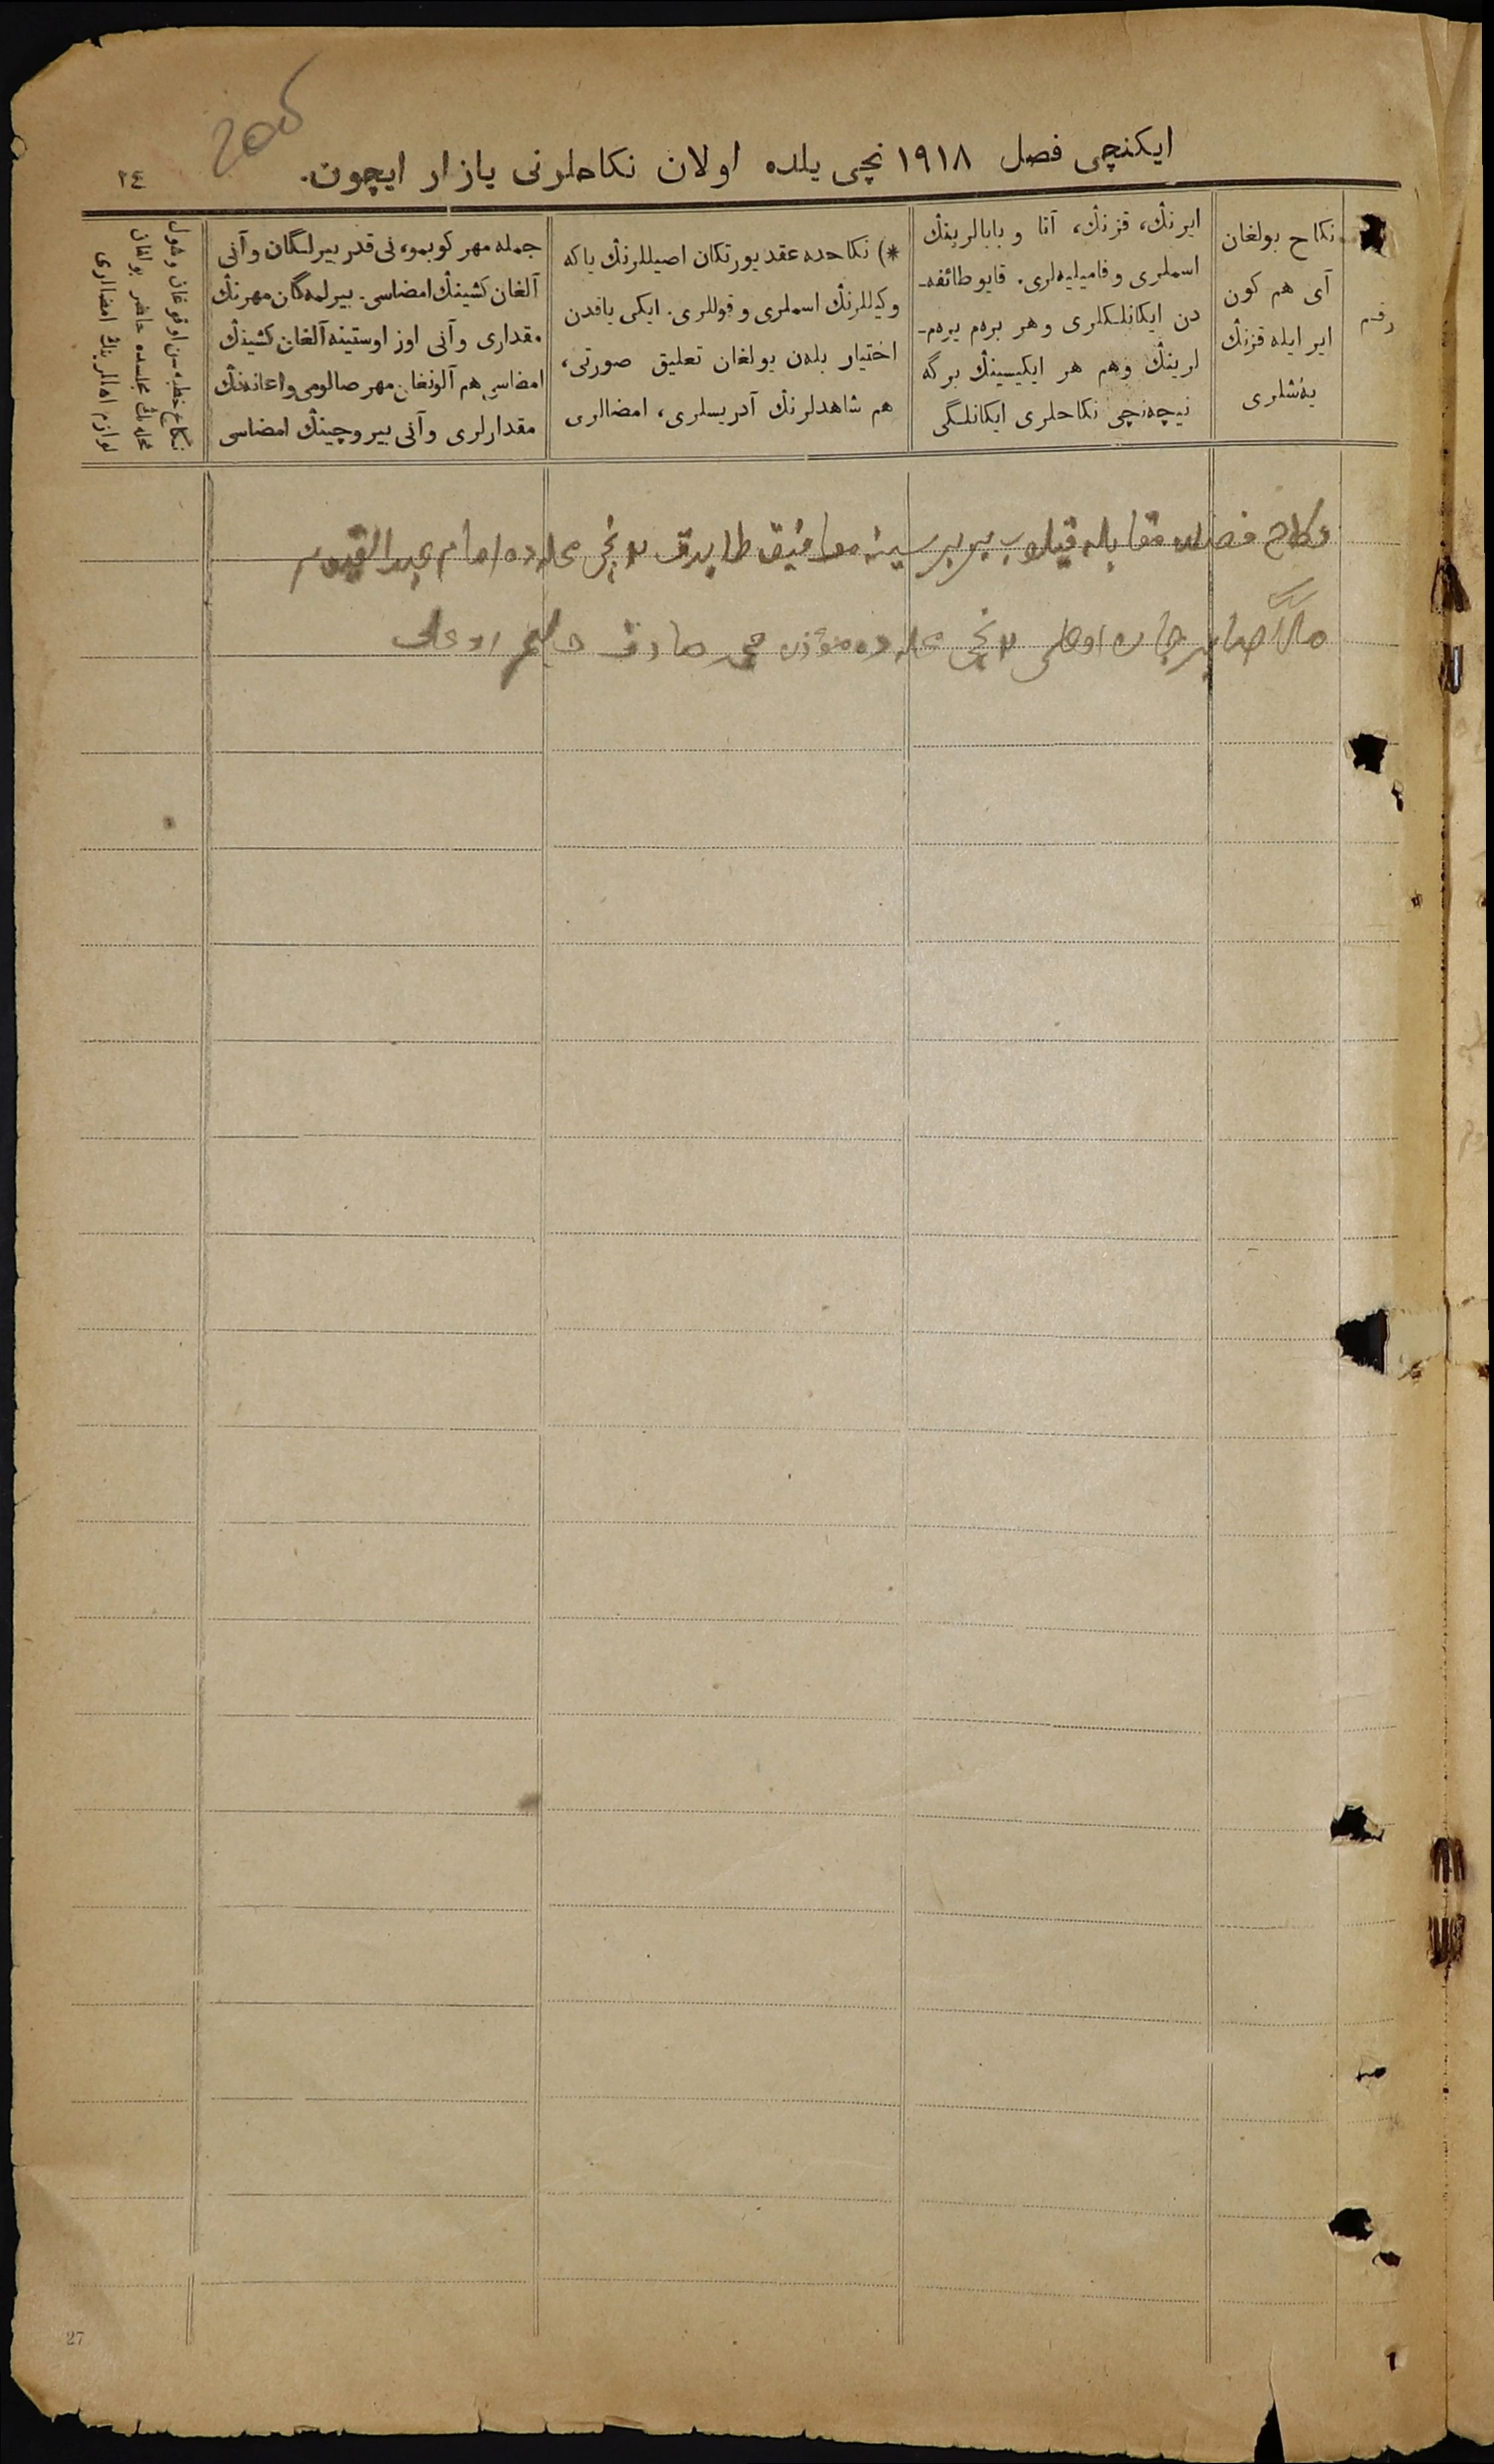 205
ایکنچی فصل ۱۹۱۸ نچی یلده اولان نکاحلرنی یازار ایچون.
۲٤
رقم
نکاح بولغان
آی هم کون
ایر ایله قزنڭ
یەشلری
ایرنڭ، قزنڭ، آتا و بابالرینڭ
اسملری و فامیلیەلری. قایو طائفه‌ـ
دن ایکانلکلری و هر برەم یرەم‌ـ
لرینڭ وهم هر ایکیسینڭ برگه
نیچەنچی نکاحلری ایکانلگی
*) نکاحده عقد یورتکان اصیللرنڭ یا که
وکیللرنڭ اسملری و قوللری. ایکی یاقدن
اختیار بلەن بولغان تعلیق صورتی،
هم شاهدلرنڭ آدریسلری، امضالری
جمله مهر کوبمو، نی قدر بیرلگان و آنی
آلغان کشینڭ امضاسی. بیرلمەگان مهرنڭ
مقداری و آنی اوز اوستینه آلغان کشینڭ
امضاسی هم آلونغان مهر صالومی و اعانەنڭ
مقدارلری و آنی بیروچینڭ امضاسی
نکاح خطبه‌سن اوقوغان و شول
محله‌نڭ مجلسده حاضر بولغان
لوازم اهللرینڭ امضالری
نکاح فصلله مقابله قیلوب بیر بیرسینه موافیق طابدق ۲ نچی محله‌ده امام عبدالقیوم
ملا صابرجان اوغلی ۲ نچی محله‌ده مؤذن محمد صادق اوغلی
27